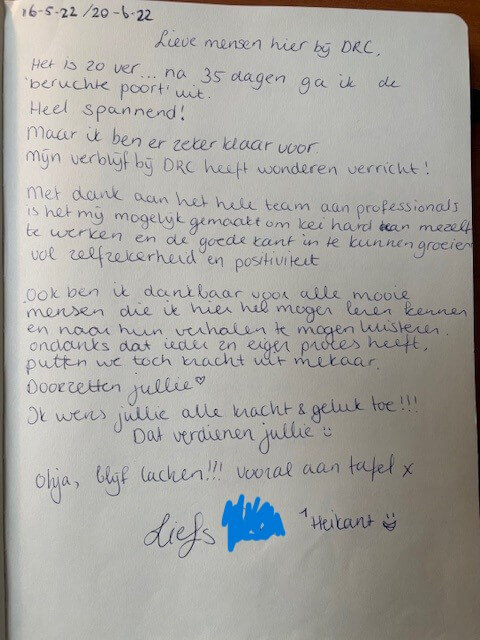 16-5-22 / 20-6-22
Lieve mensen hier bij DRC,
Het is zo ver... na 35 dagen ga ik de
'beruchte poort' uit.
Heel spannend!
Maar ik ben er zeker klaar voor.
Mijn verblijf bij DRC heeft wonderen verricht!
Met dank aan het hele team aan professionals
is het mij mogelijk gemaakt om kei hard aan mezelf
te werken en de goede kant in te kunnen groeien
vol zelfzekerheid en positiviteit
Ook ben ik dankbaar voor alle mooie
mensen die ik hier heb mogen leren kennen
en naar hun verhalen te mogen luisteren.
ondanks dat ieder zn eigen proces heeft,
putten we toch kracht uit mekaar.
Doorzetten jullie ♡
Ik wens jullie alle kracht & geluk toe!!!
Dat verdienen jullie :)
Ohja, blijf lachen!!! vooral aan tafel x
Liefs 1 Heikant